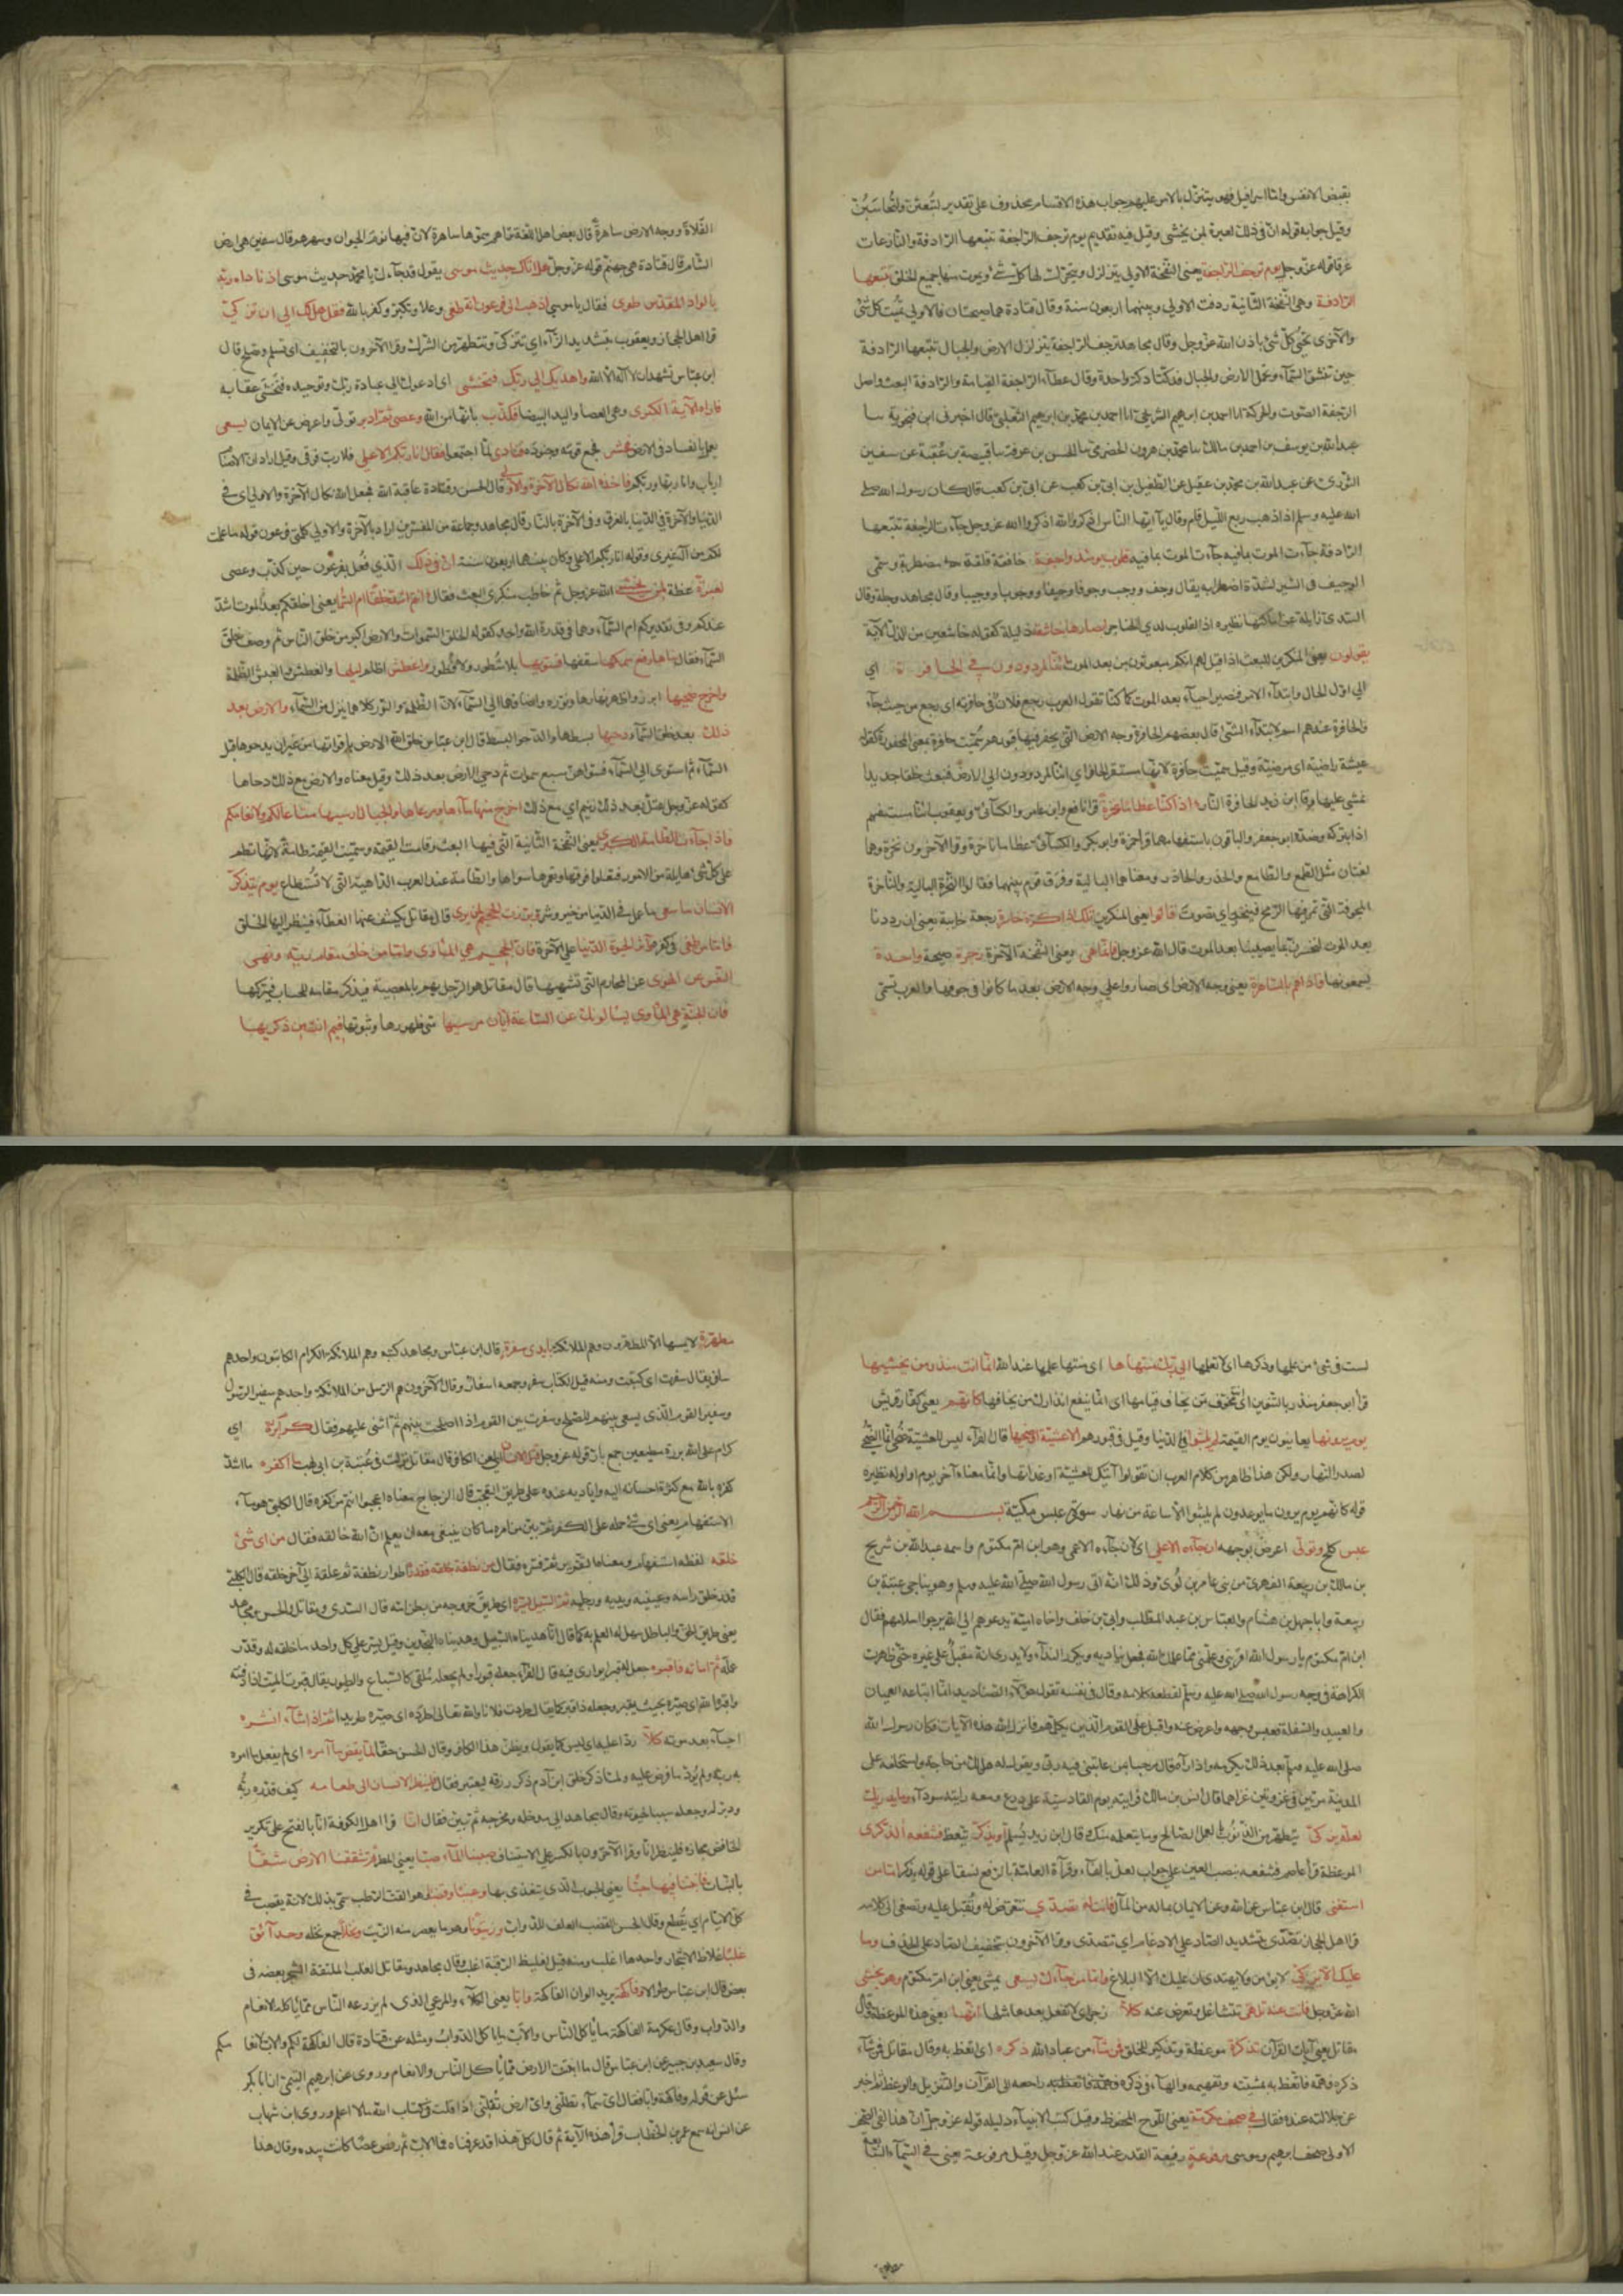 بقبض الانفس واما اسرافيل فهو يتنزل بالامر عليهم وجواب هذه الاقسام محذوف على تقدير لتبعثن ولتحاسبن
وقيل جوابه قوله ان في ذلك لعبرة لمن يخشى وقيل فيه تقديم يوم ترجف الراجفة تتبعها الرادفة والنازعات
غرقا قوله عز وجل يوم ترجف الراجفة يعني النفخة الاولى يتزلزل ويتحرك لها كل شيء ويموت منها جميع الخلق تتبعها
الرادفة وهي النفخة الثانية ردفت الاولى وبينهما اربعون سنة وقال قتادة هما صيحتان فالاولى تميت كل شئ
والاخرى تحيي كل شئ باذن الله عز وجل وقال مجاهد ترجف الراجفة يتزلزل الارض والجبال تتبعها الرادفة
حين تنشق السماء وتحمل الارض والجبال فدكتا دكة واحدة وقال عطاء الراجفة القيامة والرادفة البعث واصل
الرجفة الصوت والحركة انا احمد بن ابرهيم الشريحي انا احمد بن محمد بن ابرهيم الثعلبي قال اخبرني ابن فنجويه سا
عبد الله بن يوسف بن احمد بن مالك سا محمد بن هرون الحضرمي سا الحسن بن عرفة سا قبيصة بن عقبة عن سفين
الثوري عن عبد الله بن محمد بن عقيل عن الطفيل بن ابي بن كعب عن ابي بن كعب قال كان رسول الله صلى
الله عليه وسلم اذا ذهب ربع الليل قام وقال يا ايها الناس اذكروا الله اذكروا الله عز وجل جاءت الراجفة تتبعها
الرادفة جاءت الموت بما فيه جاءت الموت بما فيه قلوب يومئذ واجفة خافقة قلقة مضطربة وسمى
الوجيف في السير لشدة اضطرابه يقال وجف ووجب وجوفا ووجيفا ووجوبا ووجيبا وقال مجاهد وجلة وقال
السدي زايلة عن اماكنها نظيره اذ القلوب لدى الحناجر ابصارها خاشعة ذليلة كقوله خاشعين من الذل الآية
يقولون يعني المنكرين للبعث اذا قيل لهم انكم مبعوثون من بعد الموت ائنا لمردودون في الحافرة اي
الى اول الحال وابتداء الامر فنصير احياء بعد الموت كما كنا تقول العرب رجع فلان في حافرته اي رجع من حيث جاء
والحافرة عندهم اسم لابتداء الشئ قال بعضهم الحافرة وجه الارض التي يحفر فيها قبورهم سميت حافرة بمعنى المحفورة كقوله
عيشة راضية اي مرضية وقيل سميت حافرة لانها مستقر الحوافر اي ائنا لمردودون الى الارض فنبعث خلقا جديدا
نمشي عليها وقال ابن زيد الحافرة النار اذا كنا عظاما نخرة قرا نافع وابن عامر والكسائي ويعقوب ائنا مستفهم
اذا بتركه وضده ابو جعفر والباقون باستفهامهما وقرا حمزة وابو بكر والكسائي عظاما ناخرة وقرا الآخرون نخرة وهما
لغتان مثل الطمع والطامع والحذر والحاذر ومعناهما البالية وفرق قوم بينهما فقالوا النخرة البالية والناخرة
المجوفة التي تمر فيها الريح فينخر اي تصوت قالوا يعني المنكرين تلك اذا كرة خاسرة رجعة خايبة يعني ان رددنا
بعد الموت لنخسرن بما يصيبنا بعد الموت قال الله عز وجل فانما هي يعني النفخة الآخرة زجرة صيحة واحدة
يسمعونها فاذا هم بالساهرة يعني وجه الارض اي صاروا على وجه الارض بعد ما كانوا في جوفها والعرب تسمي
الفلاة ووجه الارض ساهرة قال بعض اهل اللغة تراهم سموها ساهرة لان فيها نوم الحيوان وسهرهم قال سفين هي ارض
الشام قال قتادة هي جهنم قوله عز وجل هل اتاك حديث موسى يقول قد جاءك يا محمد حديث موسى اذ ناداه ربه
بالواد المقدس طوى فقال يا موسى اذهب الى فرعون انه طغى وعلا وتكبر وكفر بالله فقل هل لك الى ان تزكى
قرا اهل الحجاز ويعقوب بتشديد الزاء اي تتزكى وتتطهر من الشرك وقرا الآخرون بالتخفيف اي تسلم وتصلح قال
ابن عباس تشهد ان لا اله الا الله واهديك الى ربك فتخشى اي ادعوك الى عبادة ربك وتوحيده فتخشى عقابه
فاراه الآية الكبرى وهي العصا واليد البيضا فكذب بانها من الله وعصى ثم ادبر تولى واعرض عن الايمان يسعى
يعمل بالفساد في الارض فحشر فجمع قومه وجنوده فنادى لما اجتمعوا فقال انا ربكم الاعلى فلا رب فوقي وقيل اراد ان الاصنام
ارباب وانا ربها وربكم فاخذه الله نكال الآخرة والاولى قال الحسن وقتادة عاقبه الله فجعل الله نكال الآخرة والاولى اي في
الدنيا والآخرة في الدنيا بالغرق وفي الآخرة بالنار وقال مجاهد وجماعة من المفسرين اراد بالآخرة والاولى كلمتي فرعون قوله ما علمت
لكم من اله غيري وقوله انا ربكم الاعلى وكان بينهما اربعون سنة ان في ذلك الذي فعل بفرعون حين كذب وعصى
لعبرة عظة لمن يخشى الله عز وجل ثم خاطب منكري البعث فقال ءانتم اشد خلقا ام السما يعني اخلقكم بعد الموت اشد
عندكم وفي تقديركم ام السماء وهما في قدرة الله واحد كقوله لخلق السموات والارض اكبر من خلق الناس ثم وصف خلق
السماء فقال بناها رفع سمكها سقفها فسويها بلا شطور ولا فطور واغطش اظلم ليلها والغطش والغبش الظلمة
واخرج ضحيها ابرز واظهر نهارها ونوره واضافهما الى السماء لان الظلمة والنور كلاهما ينزل من السماء والارض بعد
ذلك بعد خلق السماء دحيها بسطها والدحو البسط قال ابن عباس خلق الله الارض باقواتها من غير ان يدحوها قبل
السماء ثم استوى الى السماء فسواهن سبع سموات ثم دحى الارض بعد ذلك وقيل معناه والارض مع ذلك دحاها
كقوله عز وجل عتل بعد ذلك زنيم اي مع ذلك اخرج منها ماءها ومرعاها والجبال ارسيها متاعا لكم ولانعامكم
فاذا جاءت الطامة الكبرى يعني النفخة الثانية التي فيها البعث وقامت القيمة وسميت القيمة طامة لانها تطم
على كل شئ هايلة من الامور فتعلوا فوقها وتغمر ما سواها والطامة عند العرب الداهية التي لا تستطاع يوم يتذكر
الانسان ما سعى ما عمل في الدنيا من خير وشر وبرزت الجحيم لمن يرى قال مقاتل يكشف عنها الغطاء فينظر اليها الخلق
فاما من طغى في كفره وآثر الحيوة الدنيا على الآخرة فان الجحيم هي الماوى واما من خاف مقام ربه ونهى
النفس عن الهوى عن المحارم التي تشتهيها قال مقاتل هو الرجل يهم بالمعصية فيذكر مقامه للحساب فيتركها
فان الجنة هي الماوى يسالونك عن الساعة ايان مرسيها متى ظهورها وثبوتها فيم انت من ذكريها
لست في شئ من علمها وذكرها اي لا تعلمها الى ربك منتهاها اي منتهى علمها عند الله انما انت منذر من يخشيها
قرا ابو جعفر منذر بالتنوين اي مخوف من يخاف قيامها اي انما ينفع انذارك من يخافها كانهم يعني كفار قريش
يوم يرونها يعاينون يوم القيمة لم يلبثوا في الدنيا وقيل في قبورهم الا عشية او ضحيها قال الفراء ليس للعشية ضحى انما الضحى
لصدر النهار ولكن هذا ظاهر من كلام العرب ان تقولوا آتيك العشية او غداتها وانما معناه آخر يوم او اوله نظيره
قوله كانهم يوم يرون ما يوعدون لم يلبثوا الا ساعة من نهار سورة عبس مكية بسم الله الرحمن الرحيم
عبس كلح وتولى اعرض بوجهه ان جاءه الاعمى اي لان جاءه الاعمى وهو ابن ام مكتوم واسمه عبد الله بن شريح
بن مالك بن ربيعة الفهري من بني عامر بن لؤي وذلك انه اتى رسول الله صلى الله عليه وسلم وهو يناجي عتبة بن
ربيعة وابا جهل بن هشام والعباس بن عبد المطلب وابي بن خلف واخاه امية يدعوهم الى الله يرجوا اسلامهم فقال
ابن ام مكتوم يا رسول الله اقرئني وعلمني مما علمك الله فجعل يناديه ويكرر النداء ولا يدري انه مقبل على غيره حتى ظهرت
الكراهة في وجه رسول الله صلى الله عليه وسلم لقطعه كلامه وقال في نفسه تقول هؤلاء الصناديد انما اتباعه العميان
والعبيد والسفلة فعبس وجهه واعرض عنه واقبل على القوم الذين يكلمهم فانزل الله هذه الآيات فكان رسول الله
صلى الله عليه وسلم بعد ذلك يكرمه واذا رآه قال مرحبا بمن عاتبني فيه ربي ويقول له هل لك من حاجة واستخلفه على
المدينة مرتين في غزوتين غزاهما قال انس بن مالك فرايته يوم القادسية عليه درع ومعه راية سوداء وما يدريك
لعله يزكى يتطهر من الذنوب بالعمل الصالح وما يتعلمه منك قال ابن زيد يسلم او يذكر يتعظ فتنفعه الذكرى
الموعظة قرا عاصم فتنفعه بنصب العين على جواب لعل بالفاء وقراءة العامة بالرفع نسقا على قوله يذكر اما من
استغنى قال ابن عباس عن الله وعن الايمان بماله من المال فانت له تصدى تتعرض له وتقبل عليه وتصغى الى كلامه
قرا اهل الحجاز تصدى بتشديد الصاد على الادغام اي تتصدى وقرا الآخرون بتخفيف الصاد على الحذف وما
عليك الا يزكى لا يؤمن ولا يهتدي ان عليك الا البلاغ واما من جاءك يسعى يمشي يعني ابن ام مكتوم وهو يخشى
الله عز وجل فانت عنه تلهى تتشاغل وتعرض عنه كلا زجر اي لا تفعل بعدها مثلها انها يعني هذه الموعظة وقال
مقاتل يعني آيات القرآن تذكرة موعظة وتذكير للخلق فمن شاء من عباد الله ذكره اي اتعظ به وقال مقاتل فمن شاء
ذكره فهمه فاتعظ به بمشيته وتفهيمه والهاء في ذكره راجعة الى القرآن والتنزيل والوعظ ثم اخبر
عن جلالته عنده فقال في صحف مكرمة يعني اللوح المحفوظ وقيل كتب الانبياء دليله قوله عز وجل ان هذا لفي الصحف
الاولى صحف ابرهيم وموسى مرفوعة رفيعة القدر عند الله عز وجل وقيل مرفوعة يعني في السماء السابعة
مطهرة لا يمسها الا المطهرون وهم الملائكة بايدي سفرة قال ابن عباس ومجاهد كتبة وهم الملائكة الكرام الكاتبون واحدهم
سافر يقال سفرت اي كتبت ومنه قيل للكتاب سفر وجمعه اسفار وقال الآخرون هم الرسل من الملائكة واحدهم سفير الرسول
وسفير القوم الذي يسعى بينهم للصلح وسفرت بين القوم اذا اصلحت بينهم ثم اثنى عليهم فقال كرام بررة اي
كرام على الله بررة مطيعين جمع بار قوله عز وجل قتل الانسان اي لعن الكافر قال مقاتل نزلت في عتبة بن ابي لهب ما اكفره ما اشد
كفره بالله مع كثرة احسانه اليه واياديه عنده على طريق التعجب قال الزجاج معناه اعجبوا انتم من كفره قال الكلبي هو ماء
الاستفهام يعني اي شئ حمله على الكفر ثم بين من امره ما كان ينبغي معه ان يعلم ان الله خالقه فقال من اي شئ
خلقه لفظه استفهام ومعناه التقرير ثم فسره فقال من نطفة خلقه فقدره اطوارا نطفة ثم علقة الى آخر خلقه قال الكلبي
قدر خلق راسه وعينيه ويديه ورجليه ثم السبيل يسره اي طريق خروجه من بطن امه قال السدي ومقاتل والحسن ومجاهد
يعني طريق الحق والباطل سهل له العلم به كما قال انا هديناه السبيل وهديناه النجدين وقيل يسر على كل واحد ما خلقه له وقدر
عليه ثم اماته فاقبره جعل له قبرا يوارى فيه قال الفراء جعله مقبورا ولم يجعله ملقى كالسباع والطيور يقال قبرت الميت اذا دفنته
واقبره الله اي صيره بحيث يقبر وجعله ذا قبر كما يقال طردت فلانا والله تعالى اطرده اي صيره طريدا ثم اذا شاء انشره
احياه بعد موته كلا ردا عليه اي ليس كما يقول ويظن هذا الكافر وقال الحسن حقا لما يقض ما امره اي لم يفعل ما امره
به ربه ولم يؤد ما فرض عليه ولما ذكر خلق ابن آدم ذكر رزقه ليعتبر فقال فلينظر الانسان الى طعامه كيف قدره ربه
ودبره له وجعله سببا لحيوته وقال مجاهد الى مدخله ومخرجه ثم بين فقال انا قرا اهل الكوفة انا بالفتح على تكرير
الخافض مجازه فلينظر الى انا وقرا الآخرون بالكسر على الاستيناف صببنا الماء صبا يعني المطر ثم شققنا الارض شقا
بالنبات فانبتنا فيها حبا يعني الحبوب التي يتغذى بها وعنبا وقضبا وهو القت الرطب سمى بذلك لانه يقضب في
كل الايام اي يقطع وقال الحسن القضب العلف للدواب وزيتونا وهو ما يعصر منه الزيت ونخلا جمع نخلة وحدائق
غلبا غلاظ الاشجار واحدها اغلب ومنه قيل لغليظ الرقبة اغلب وقال مجاهد ومقاتل الغلب الملتفة الشجر بعضه في
بعض قال ابن عباس طوالا وفاكهة يريد الوان الفاكهة وابا يعني الكلاء والمرعى الذي لم يزرعه الناس مما ياكله الانعام
والدواب وقال عكرمة الفاكهة ما ياكل الناس والاب ما ياكل الدواب ومثله عن قتادة قال الفاكهة لكم والاب لانعامكم
وقال سعيد بن جبير عن ابن عباس قال ما انبتت الارض مما ياكل الناس والانعام وروى عن ابرهيم التيمي ان ابا بكر
سئل عن قوله وفاكهة وابا فقال اي سماء تظلني واي ارض تقلني اذا قلت في كتاب الله ما لا اعلم وروى ابن شهاب
عن انس انه سمع عمر بن الخطاب قرأ هذه الآية ثم قال كل هذا قد عرفناه فما الاب ثم رفض عصا كانت بيده وقال هذا